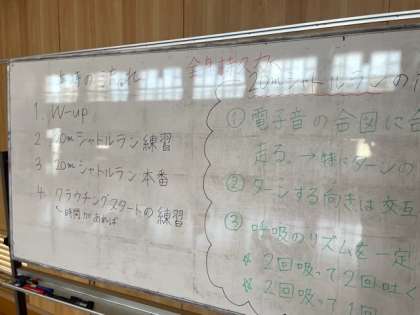 本時の流れ
1. W-up
2. 20mシャトルラン練習
3. 20mシャトルラン本番
4. クラウチングスタートの練習
時間があれば
20mシャトルランの
① 電子音の合図に合
走る。→特にターンの
② ターンする向きは交互
③ 呼吸のリズムを一定
☆ 2回吸って2回吐く
☆ 2回吸って1回